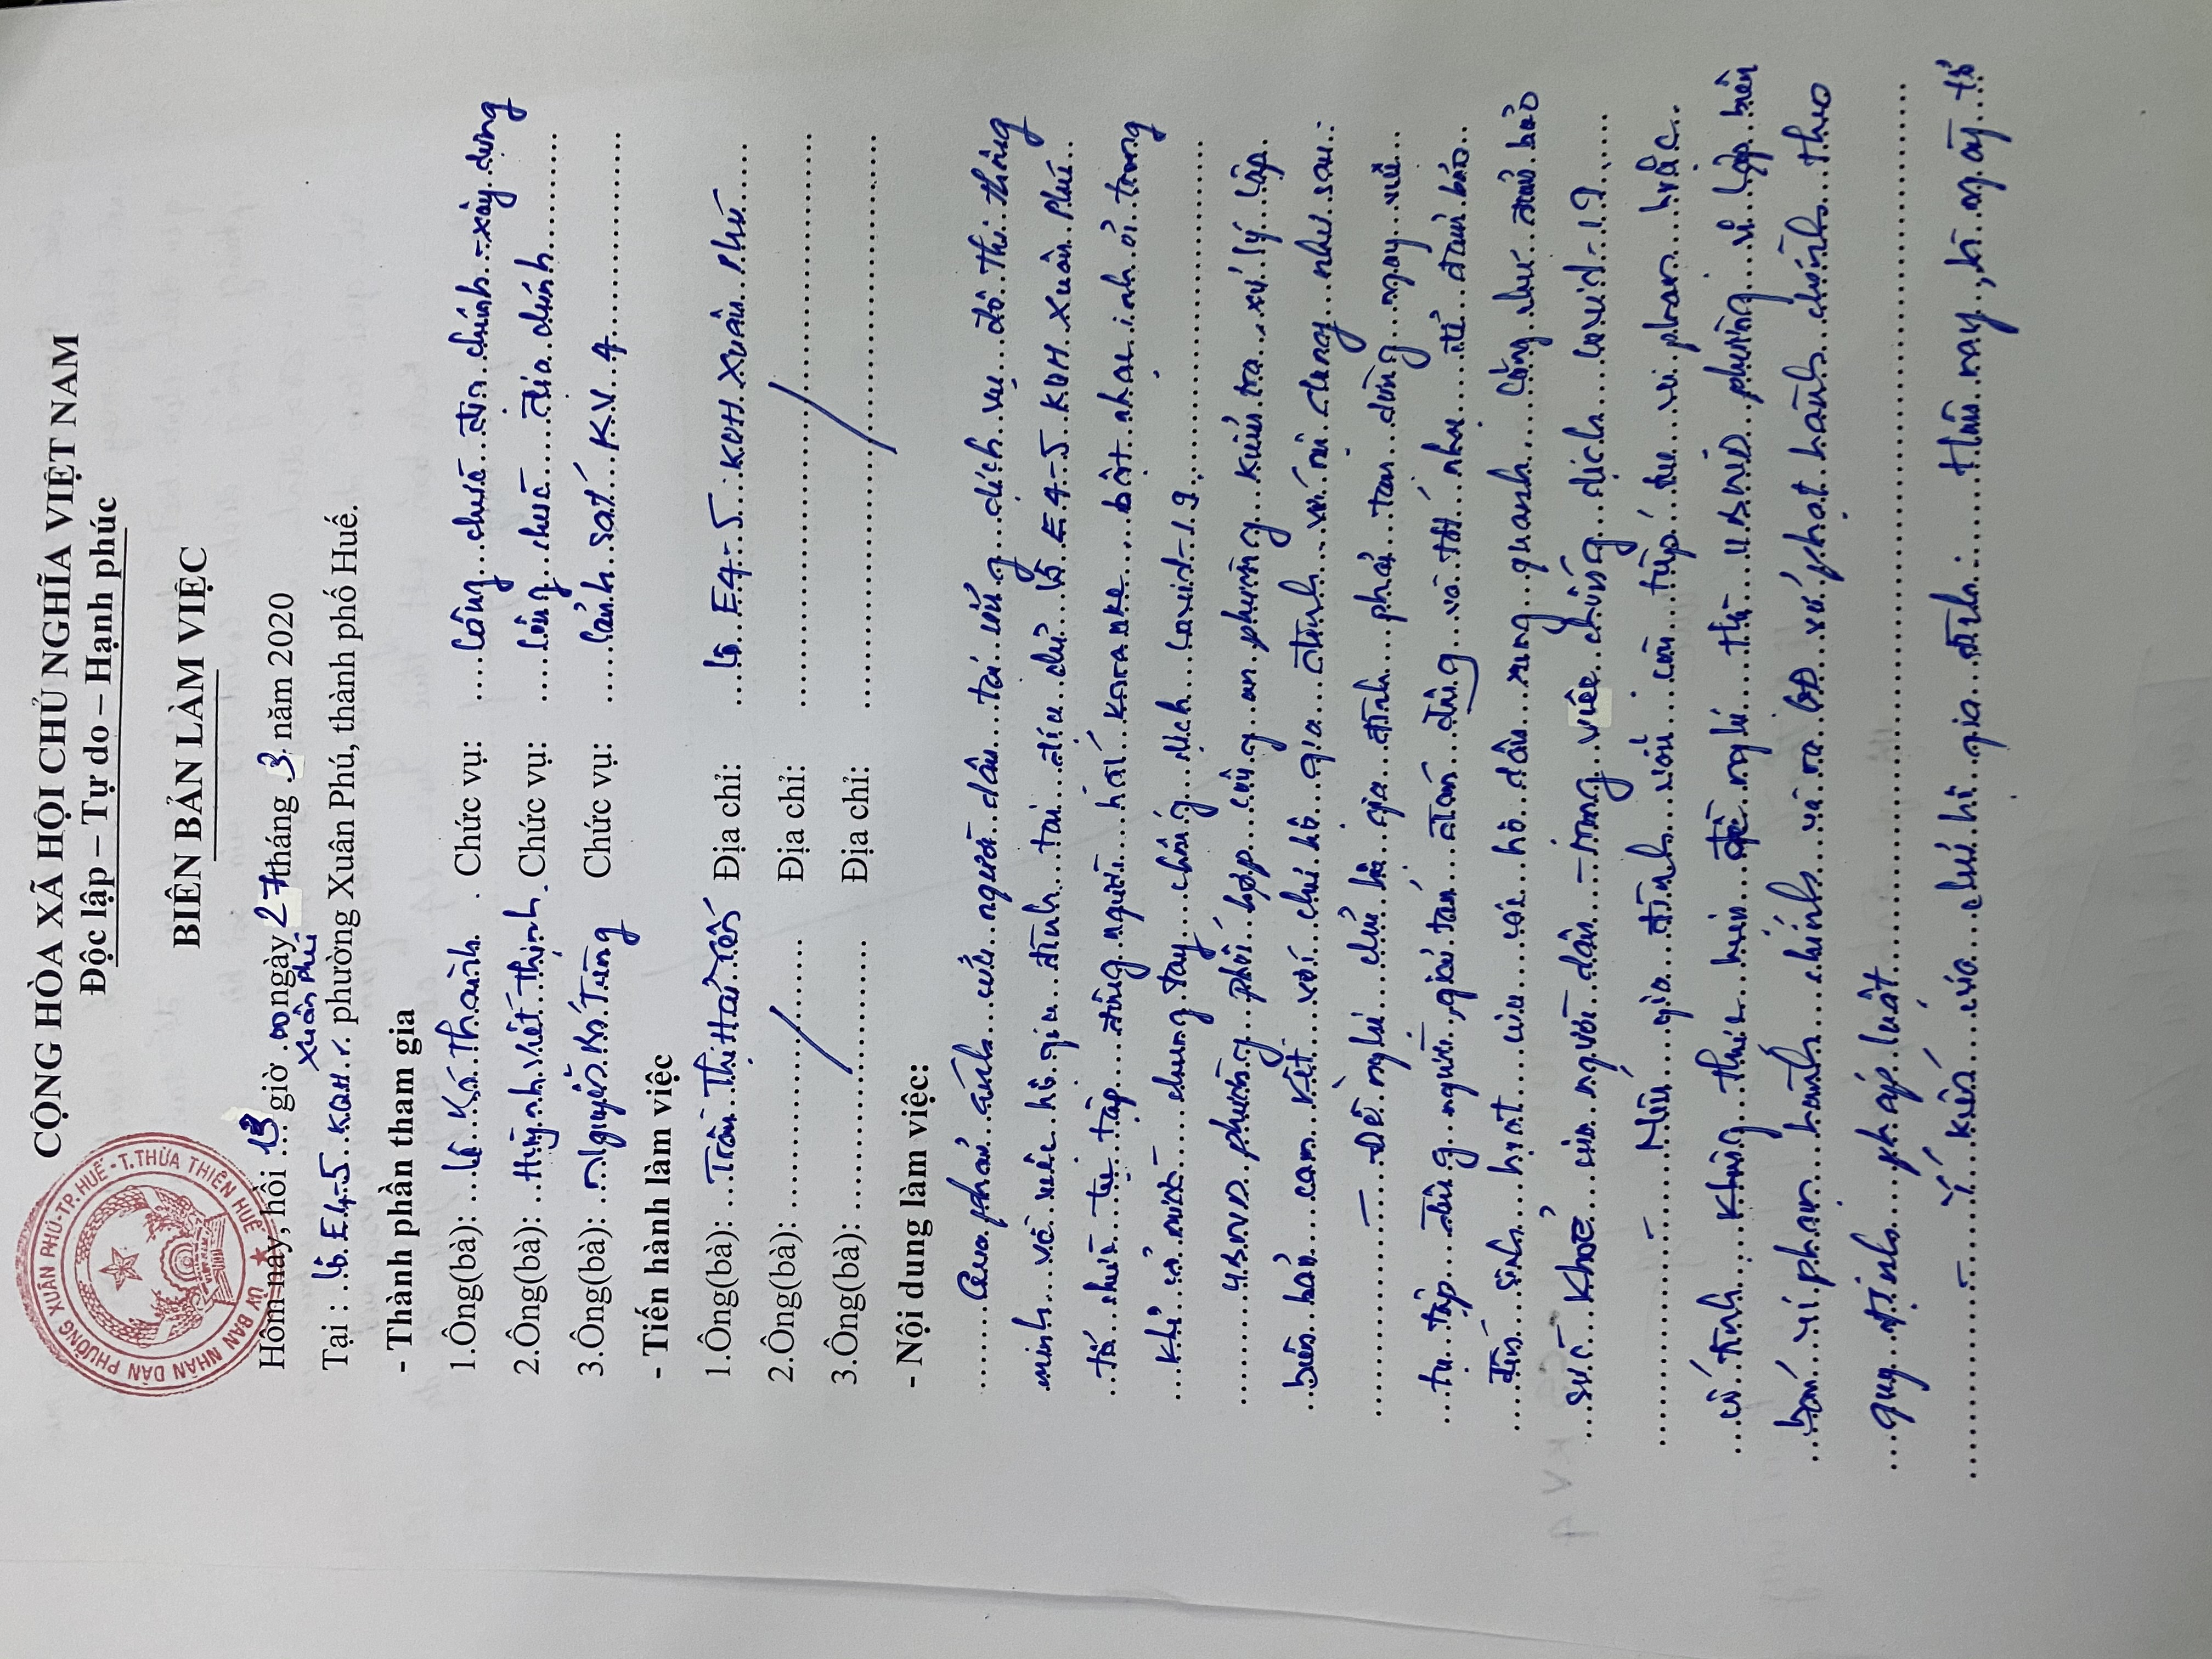 CỘNG HÒA XÃ HỘI CHỦ NGHĨA VIỆT NAM
Độc lập – Tự do – Hạnh phúc
BIÊN BẢN LÀM VIỆC
ỦY BAN NHÂN DÂN PHƯỜNG XUÂN PHÚ-TP.HUẾ-T.THỪA THIÊN HUẾ
Hôm nay, hồi 13 giờ 00 ngày 27 tháng 3 năm 2020
Xuân Phú
Tại : lô E4-5 KQH phường Xuân Phú, thành phố Huế.
- Thành phần tham gia
1.Ông(bà): Lê Kó Thành Chức vụ: Công chức địa chính - xây dựng
2.Ông(bà): Huỳnh Viết Thịnh Chức vụ: Công chức địa chính
3.Ông(bà): Nguyễn Kó Tùng Chức vụ: Cảnh sát KV 4
- Tiến hành làm việc
1.Ông(bà): Trần Thị Hải Yến Địa chỉ: lô E4-5 KQH Xuân Phú
2.Ông(bà): Địa chỉ:
3.Ông(bà): Địa chỉ:
- Nội dung làm việc:
Qua phản ánh của người dân tại ứng dịch vụ đô thị thông
minh về việc hộ gia đình tại địa chỉ lô E4-5 KQH Xuân Phú
tổ chức tụ tập đông người hát karaoke, bật nhạc inh ỏi trong
khi cả nước chung tay chống dịch Covid-19.
UBND phường phối hợp công an phường kiểm tra, xử lý lập
biên bản cam kết với chủ hộ gia đình với nội dung như sau:
- Đề nghị chủ hộ gia đình phải tạm dừng ngay việc
tụ tập đông người, giải tán đám đông và tắt nhạc để đảm bảo
đến sinh hoạt của các hộ dân xung quanh cũng như đảm bảo
sức khoẻ của người dân trong việc chống dịch Covid-19.
- Nếu gia đình còn tiếp tục vi phạm hoặc
cố tình không thực hiện đề nghị thì UBND phường sẽ lập biên
bản vi phạm hành chính và ra QĐ xử phạt hành chính theo
quy định pháp luật
- Ý kiến của chủ hộ gia đình: Hôm nay, kỉ ngày